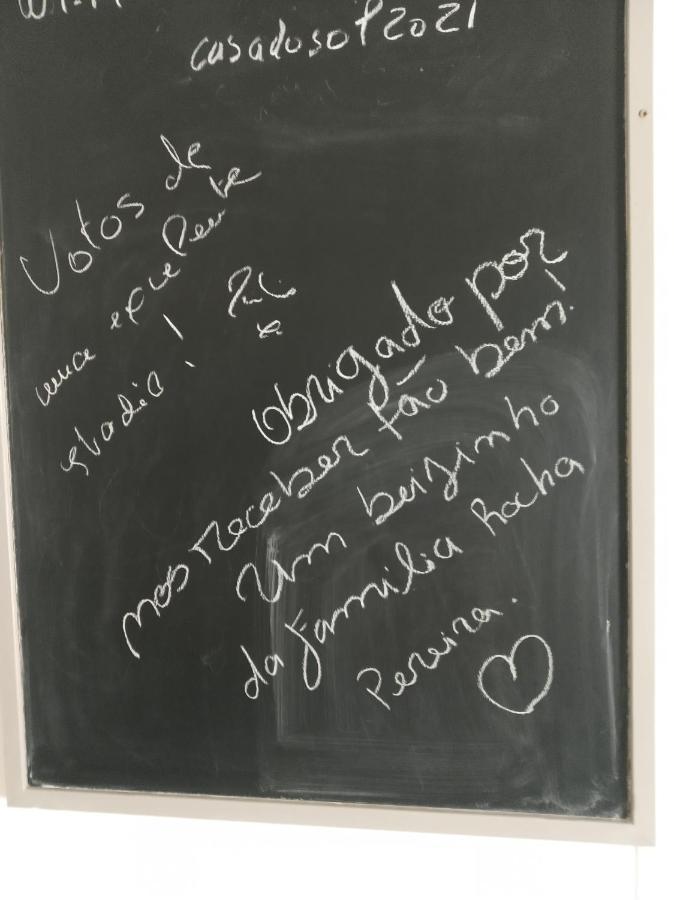 casadosol2021
Votos de
uma excelente
estadia!
Obrigado por
nos receber tão bem!
Um beijinho
da família Rocha
Pereira.